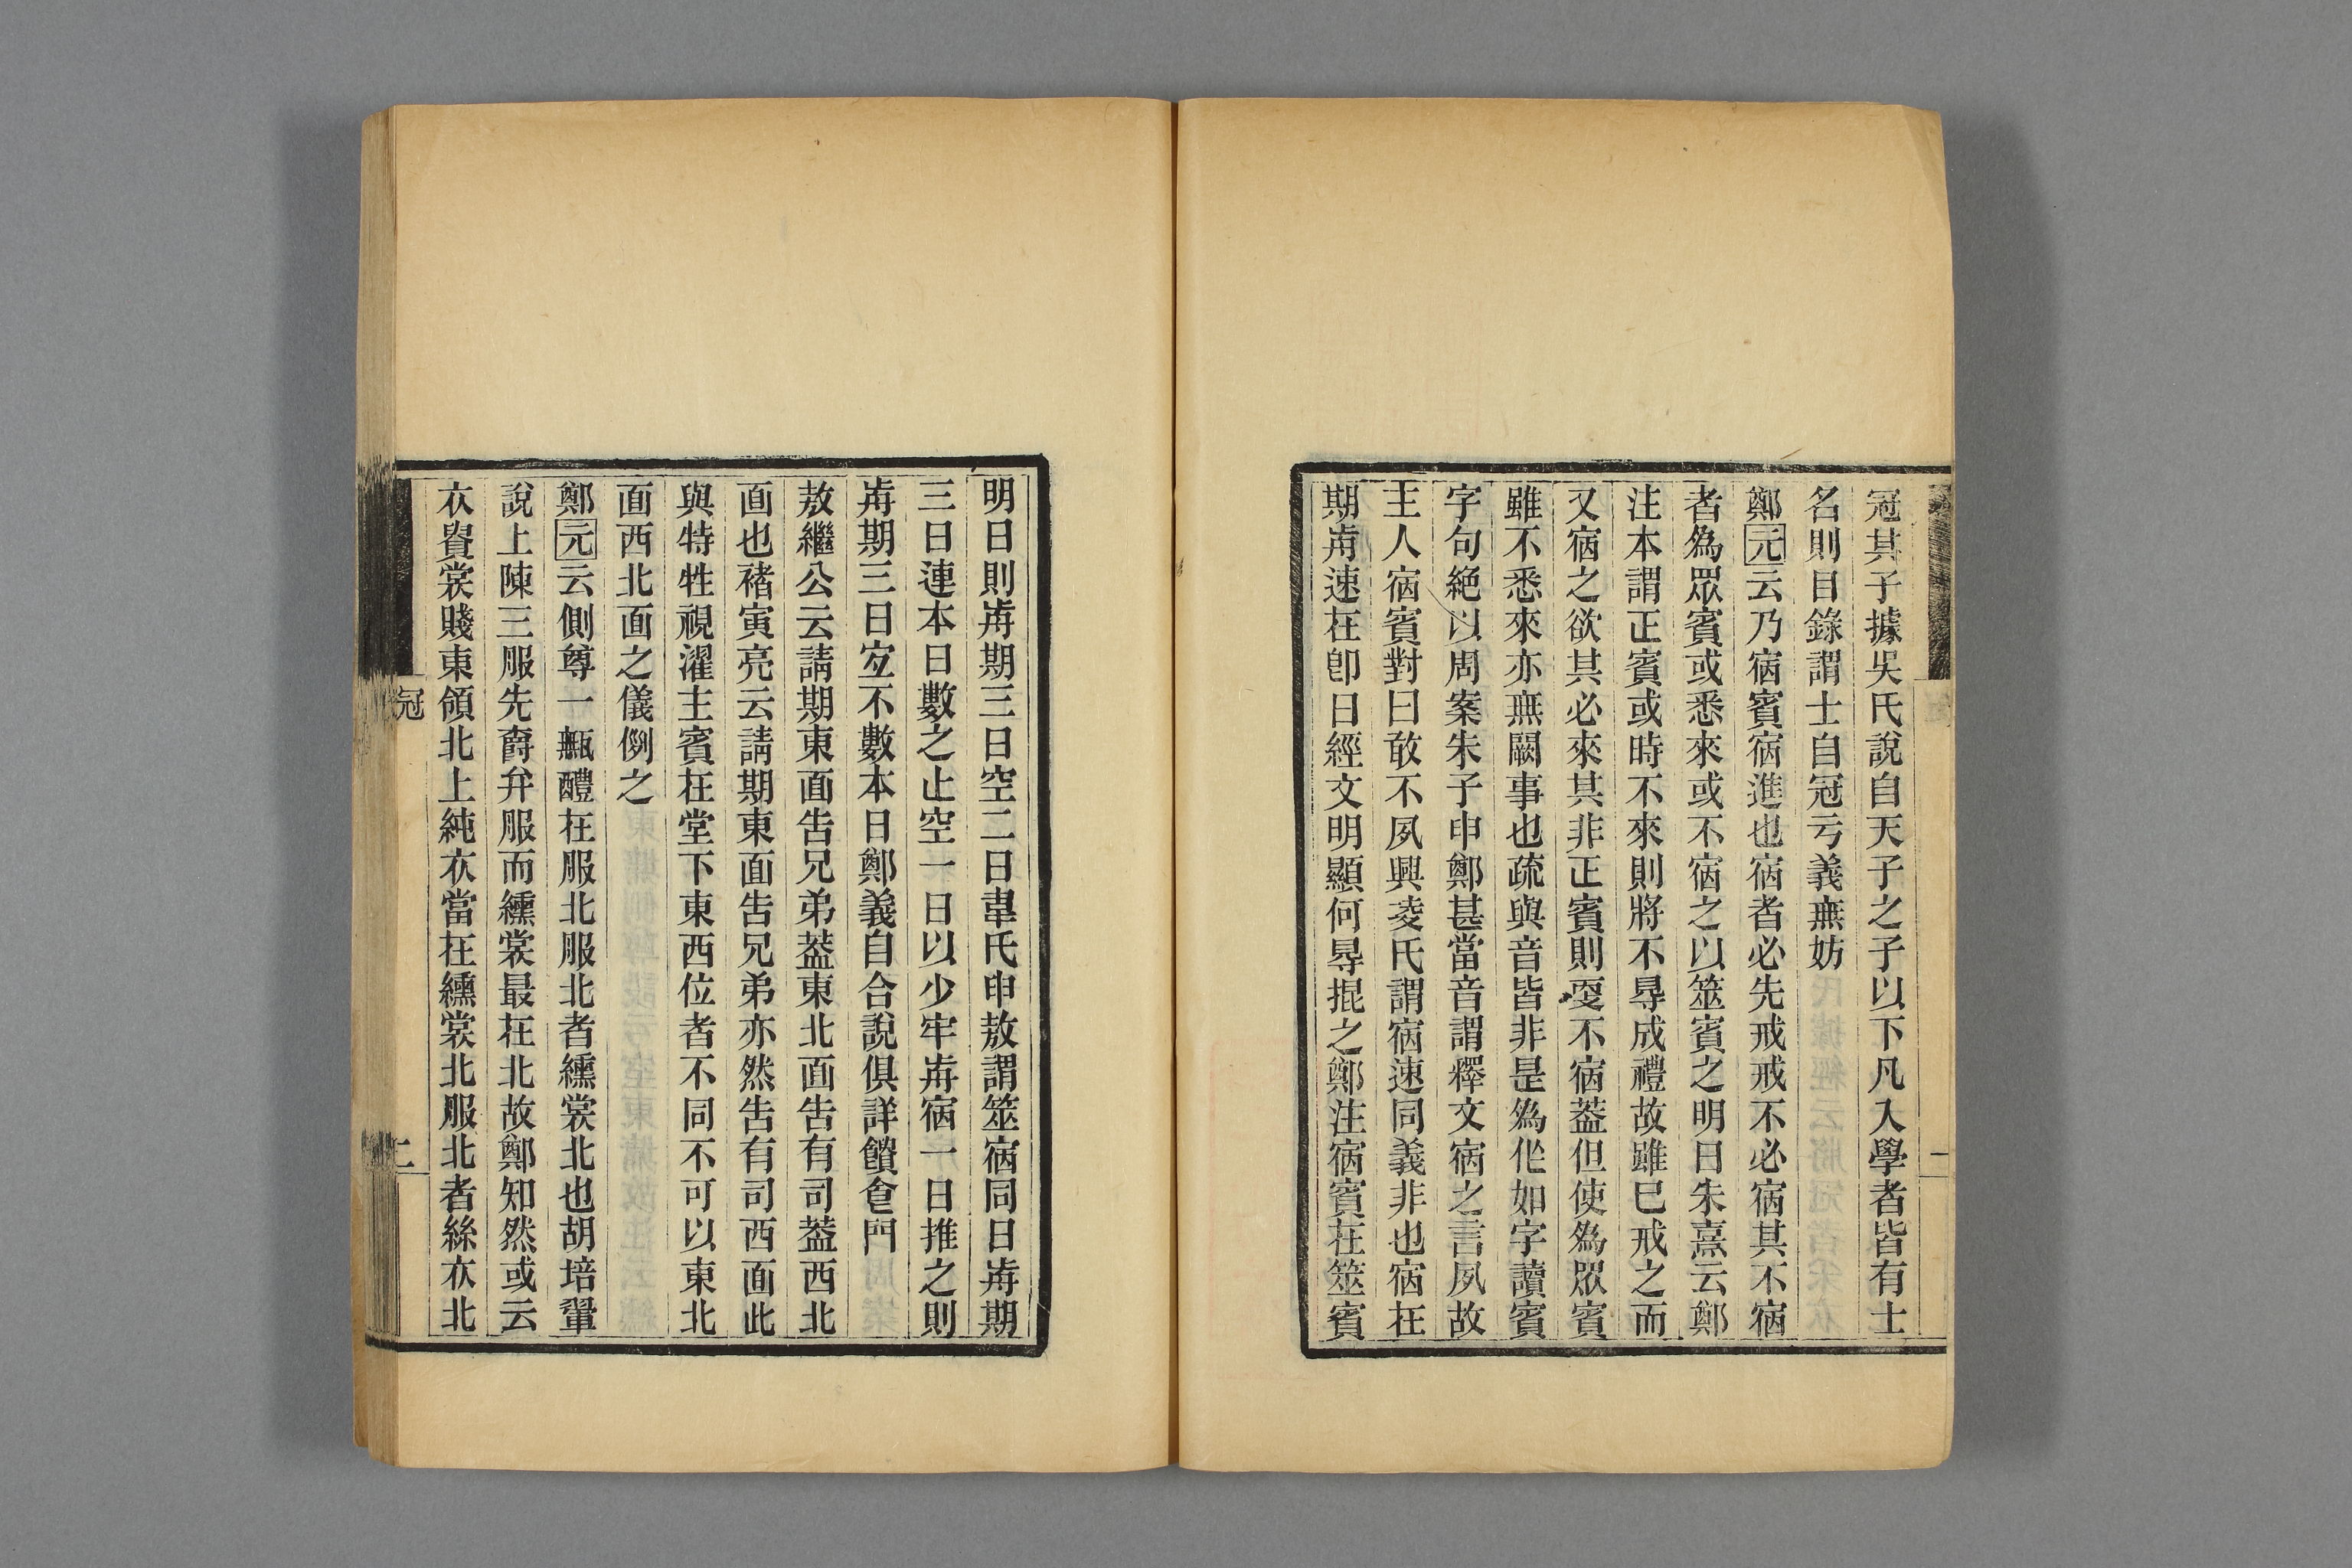 冠其子據吳氏說自天子之子以下凡入學者皆有士
名則目錄謂士自冠亏義無妨
鄭元云乃宿賓宿進也宿者必先戒戒不必宿其不宿
者爲眾賓或悉來或不宿之以筮賓之明日朱熹云鄭
注本謂正賓或時不來則將不㝵成禮故雖已戒之而
又宿之欲其必來其非正賓則㪅不宿葢但使爲眾賓
雖不悉來亦無闕事也疏與音皆非是爲㐵如字讀賓
字句絕以周案朱子申鄭甚當音謂釋文宿之言夙故
主人宿賓對曰敢不夙興凌氏謂宿速同義非也宿在
期歬速在卽日經文明顯何㝵掍之鄭注宿賓在筮賓
明日則歬期三日空二日韋氏申敖謂筮宿同日歬期
三日連本日數之止空一日以少牢歬宿一日推之則
歬期三日㝎不數本日鄭義自合說俱詳饋食門
敖繼公云請期東面告兄弟葢東北面告有司葢西北
面也褚寅亮云請期東面告兄弟亦然告有司西面此
與特牲視濯主賓在堂下東西位者不同不可以東北
面西北面之儀例之
鄭元云側尊一甒醴在服北服北者纁裳北也胡培翬
說上陳三服先爵弁服而纁裳最在北故鄭知然或云
衣貴裳賤東領北上純衣當在纁裳北服北者絲衣北
冠
二